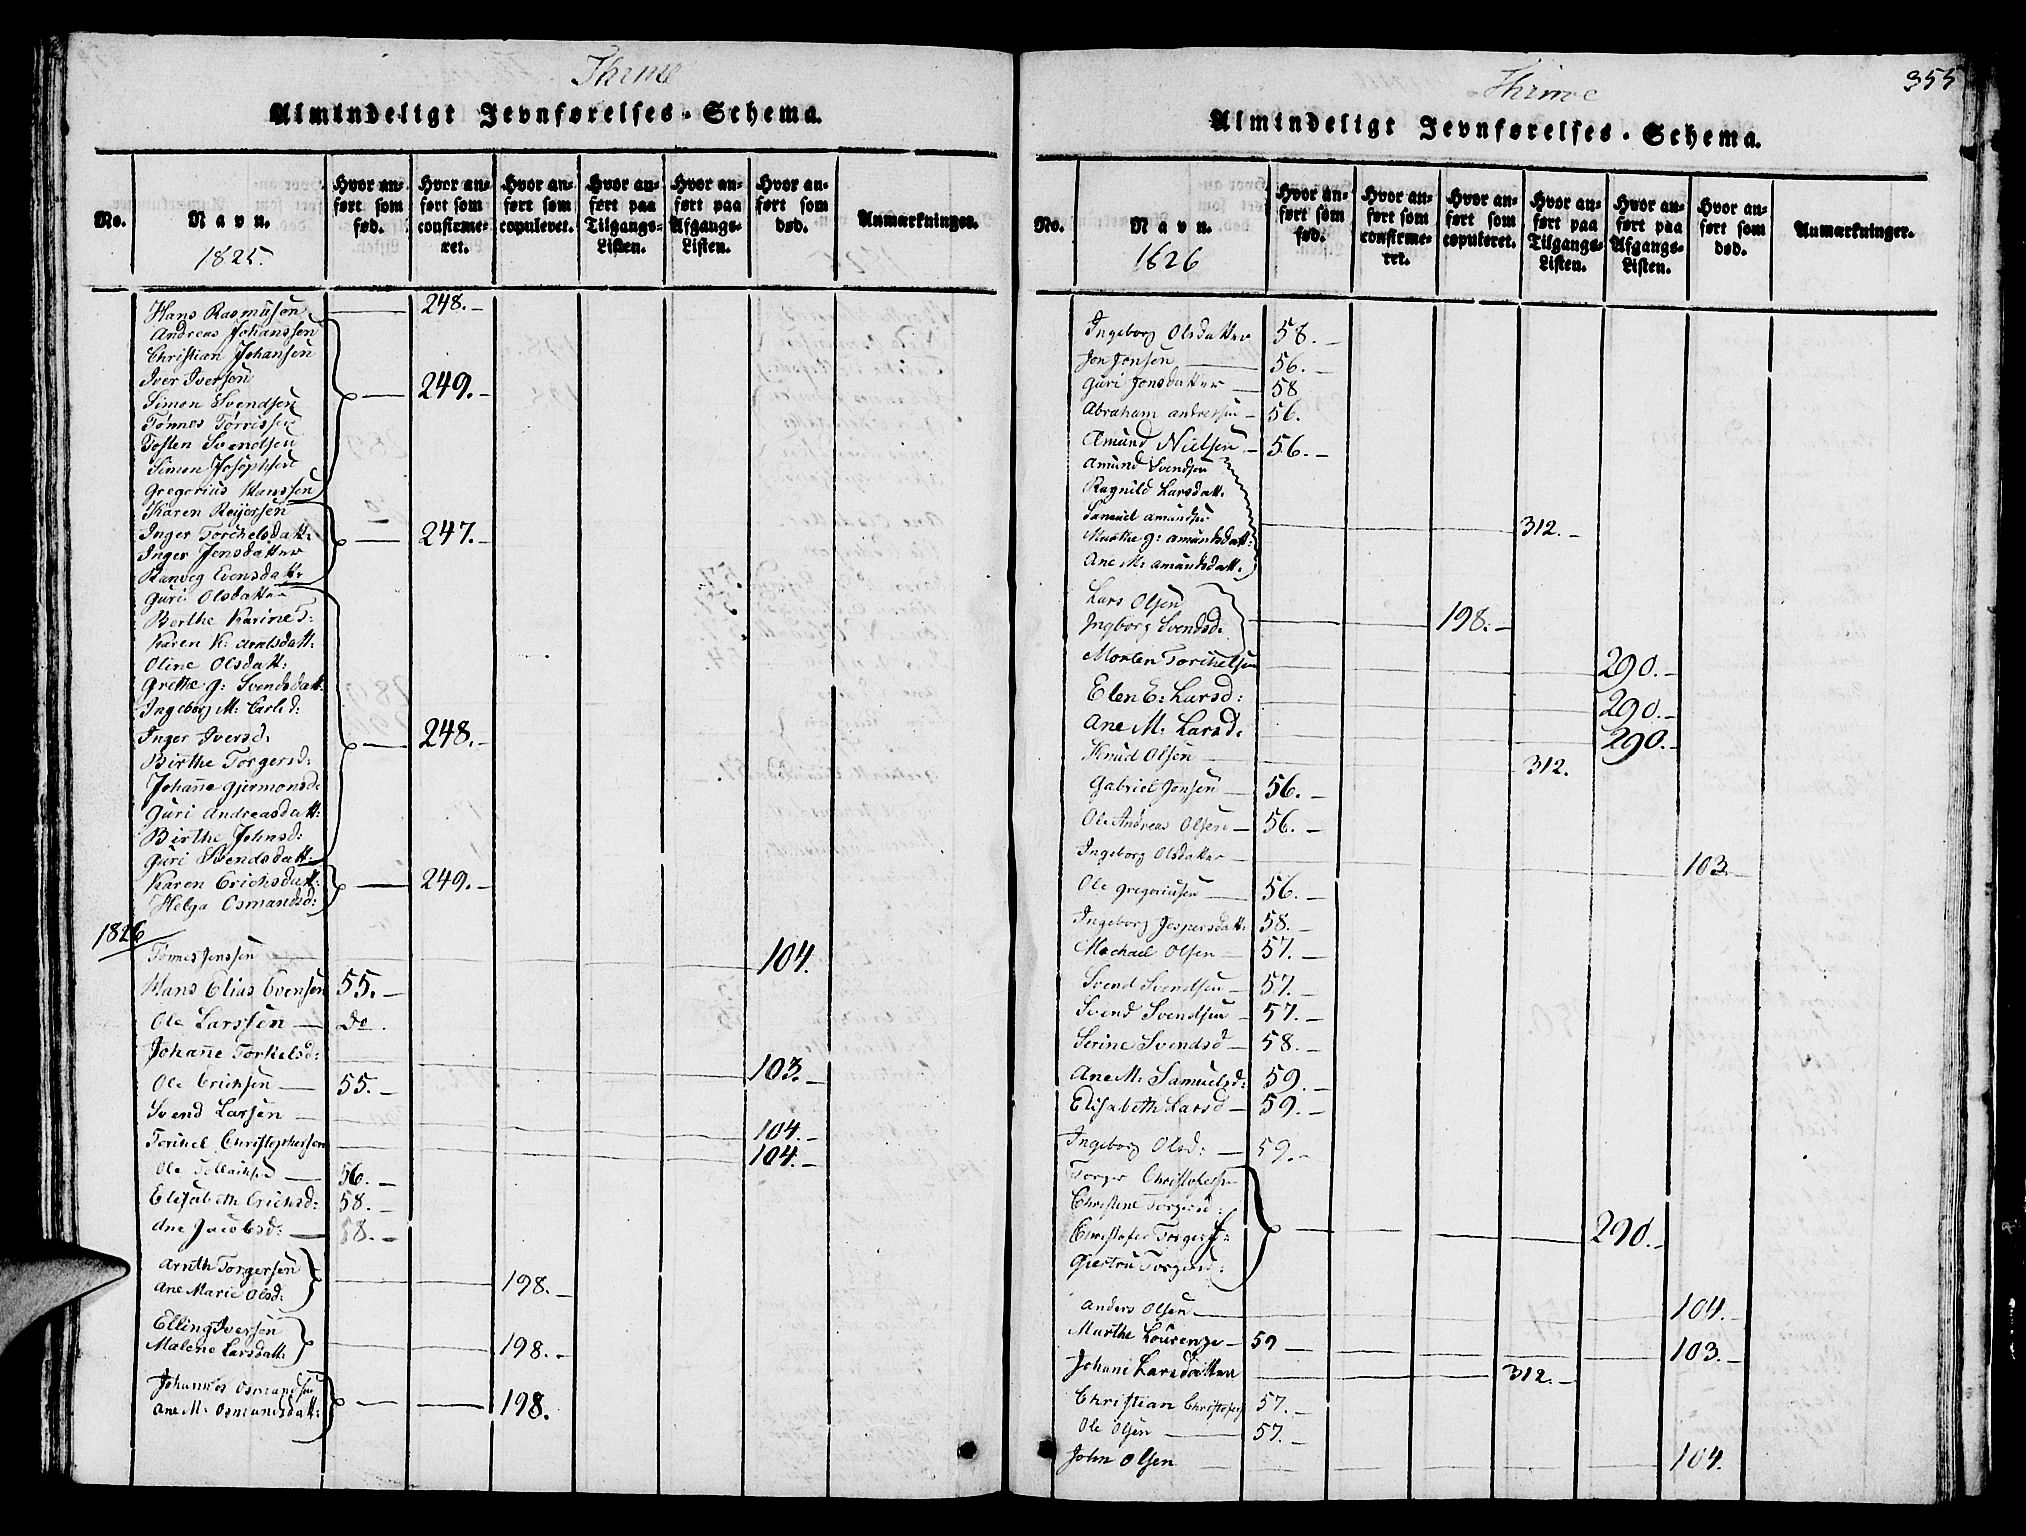 Thime
Almindeligt Jevnførelses-Schema.
No.
Navn.
1825.
Hvor anført som fød.
Hvor anført som confirmeret.
Hvor anført som copuleret.
Hvor anført paa Tilgangs-Listen.
Hvor anført paa Afgangs-Listen.
Hvor anført som død.
Anmærkninger.
Hans Rasmusen 248.
Andreas Johanssen
Christian Johansen
Iver Iversen 249.
Simon Svendsen
Tønnes Tørrissen
Tosten Svendsen
Simon Josephsen
Gregorius Hanssen
Karen Reyersen
Inger Torchelsdatt: 247.
Inger Jensdatter
Ranveg Evensdatt:
Guri Olsdatter
Berthe Karine T:
Karen K: Arntsdatt:
Oline Olsdatt:
Grethe G: Svendsdatt:
Ingeborg M: Carlsd:
Inger Iversd. 248.
Birthe Torgersd:
Johanne Gjermonsd:
Guri Andreasdatt:
Birthe Johnsd:
Guri Svendsdatt:
Karen Erichsdatt: 249.
Helga Osmandsd:
1826
Tønnes Jenssen 104.
Hans Elias Evensen 55.
Ole Larssen do.
Johanne Torkelsd: 103.
Ole Erichsen 55.
Svend Larsen 104.
Torchel Christophersen 104.
Ole 56.
Elisabeth Erichsd: 58.
Ane Jacobsd: 58.
Arnth Torgersen
Ane Marie Olsd: 198.
Elling Iversen
Malene Larsdatt: 198.
Johannes Osmundsen
Ane M: Osmundsdatt: 198.
355
Thime
Almindeligt Jevnførelses-Schema.
No.
Navn.
1826
Hvor anført som fød.
Hvor anført som confirmeret.
Hvor anført som copuleret.
Hvor anført paa Tilgangs-Listen.
Hvor anført paa Afgangs-Listen.
Hvor anført som død.
Anmærkninger.
Ingeborg Olsdatter 58.
Jon Jonsen 56.
Guri Jonsdatter 58
Abraham Andressen 56.
Amund Nielsen 56.
Amund Svendsen
Ragnild Larsdatt:
Samuel Amundsen 312.
Marthe G: Amundsdatt:
Ane M: Amundsdatt:
Lars Olsen
Ingborg Svendsd. 198.
Morten Torchelsen 290.
Elen E: Larsd: 290.
Ane M. Larsd. 290.
Knud Olsen 312.
Gabriel Jonsen 56.
Ole Andreas Olsen 56.
Ingeborg Olsdatter 103.
Ole Gregoriusen 56.
Ingeborg Jespersdatt: 58.
Mechael Olsen 57.
Svend Svendsen 57.
Svend Svendsen 57.
Serine Svendsd 58.
Ane M: Samuelsd: 59.
Elisabeth Larsd 59.
Ingeborg Olsd: 59.
Torger Christofersen
Christine Torgersd:
Christofer Torgersf: 290.
Giertru Torgersd:
Anders Olsen 104.
Marthe Lourenze 59 103.
Johane Larsdatter 312.
Christian Christofers 57.
Ole Olsen 57.
John Olsen 104.